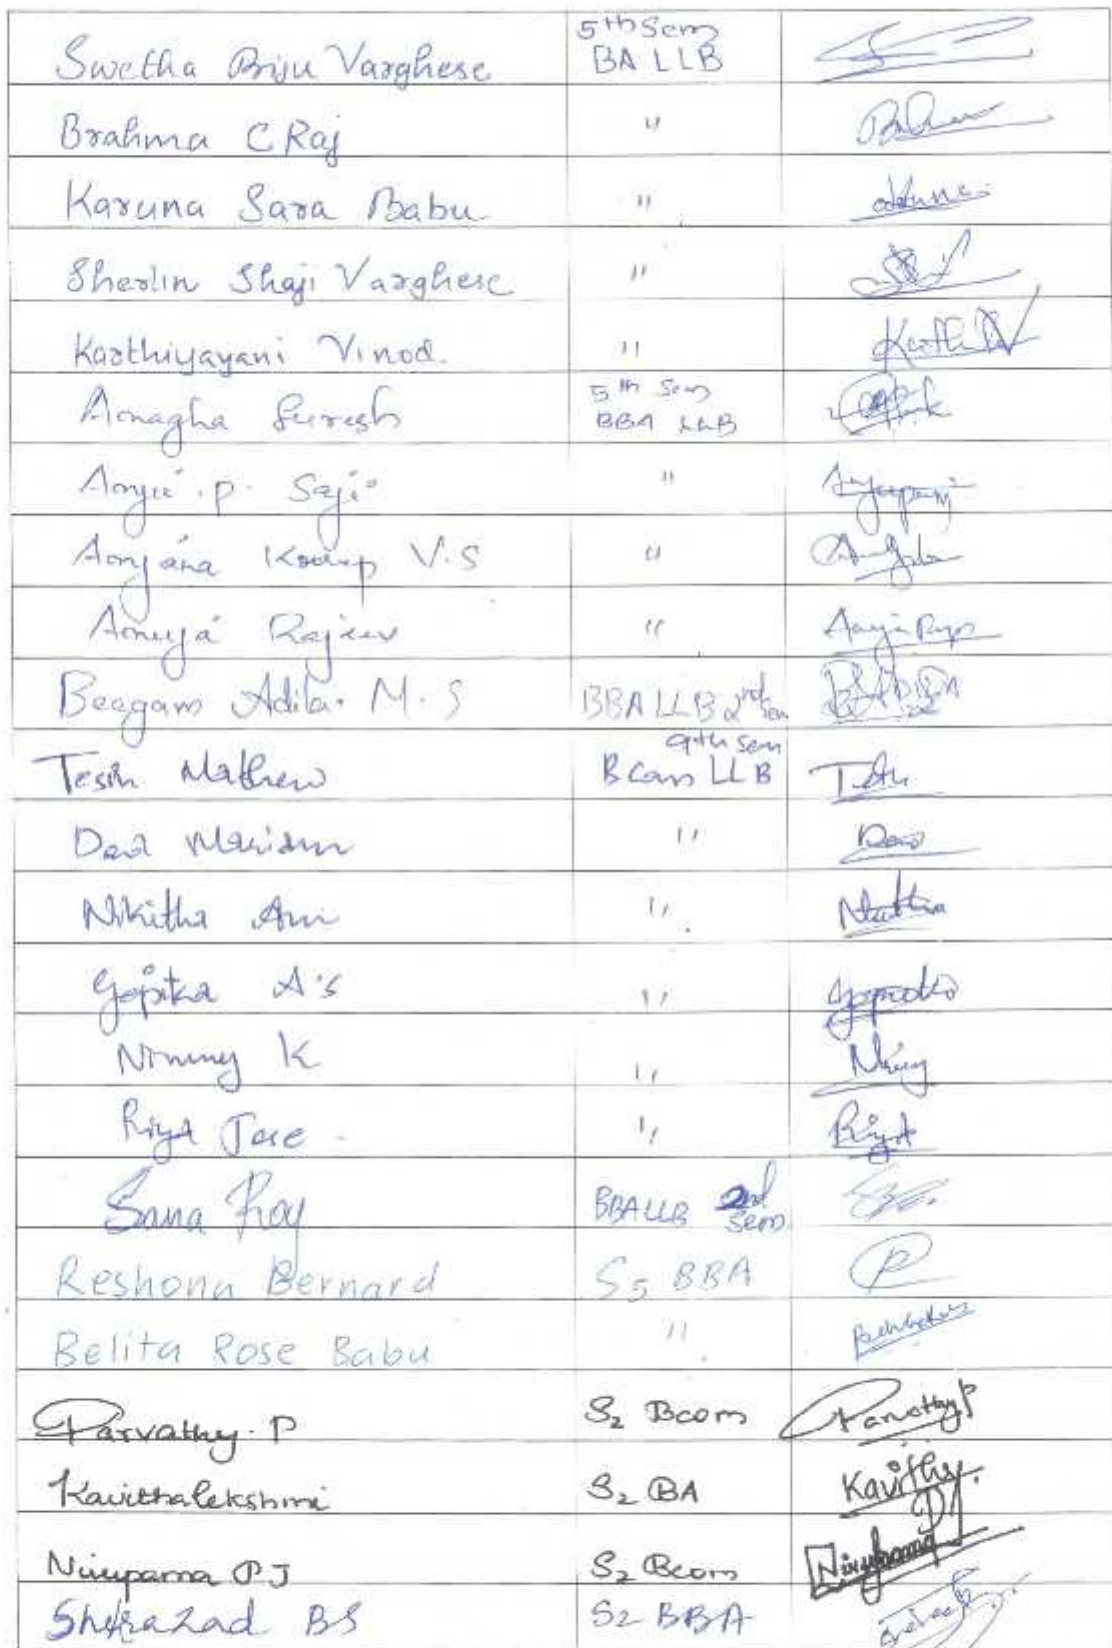 Swetha Biju Varghese 5th Sem
BA LLB
Brahma C Raj "
Karuna Sara Babu "
Sherlin Shaji Varghese "
Karthiyayani Vinod. " Karthi
Anagha Suresh 5th Sem
BBA LLB
Anju . P. Saji "
Anjana Kurup V.S "
Anuja Rajeev "
Beegam Adila. M. S BBA LLB 2nd Sem
Tesin Mathew 9th Sem
B Com LLB
Dea Mariam "
Nikitha Ann "
Gopika A.S "
Nimmy K "
Riya Jose "
Sana Roy BBA LLB 2nd
Sem
Reshonu Bernard S5 BBA
Belita Rose Babu "
Parvathy. P S2 Bcom Parvathy P
Kavithalekshmi S2 BA
Nirupama PJ S2 Bcom Nirupama
Shirazad BS S2 BBA